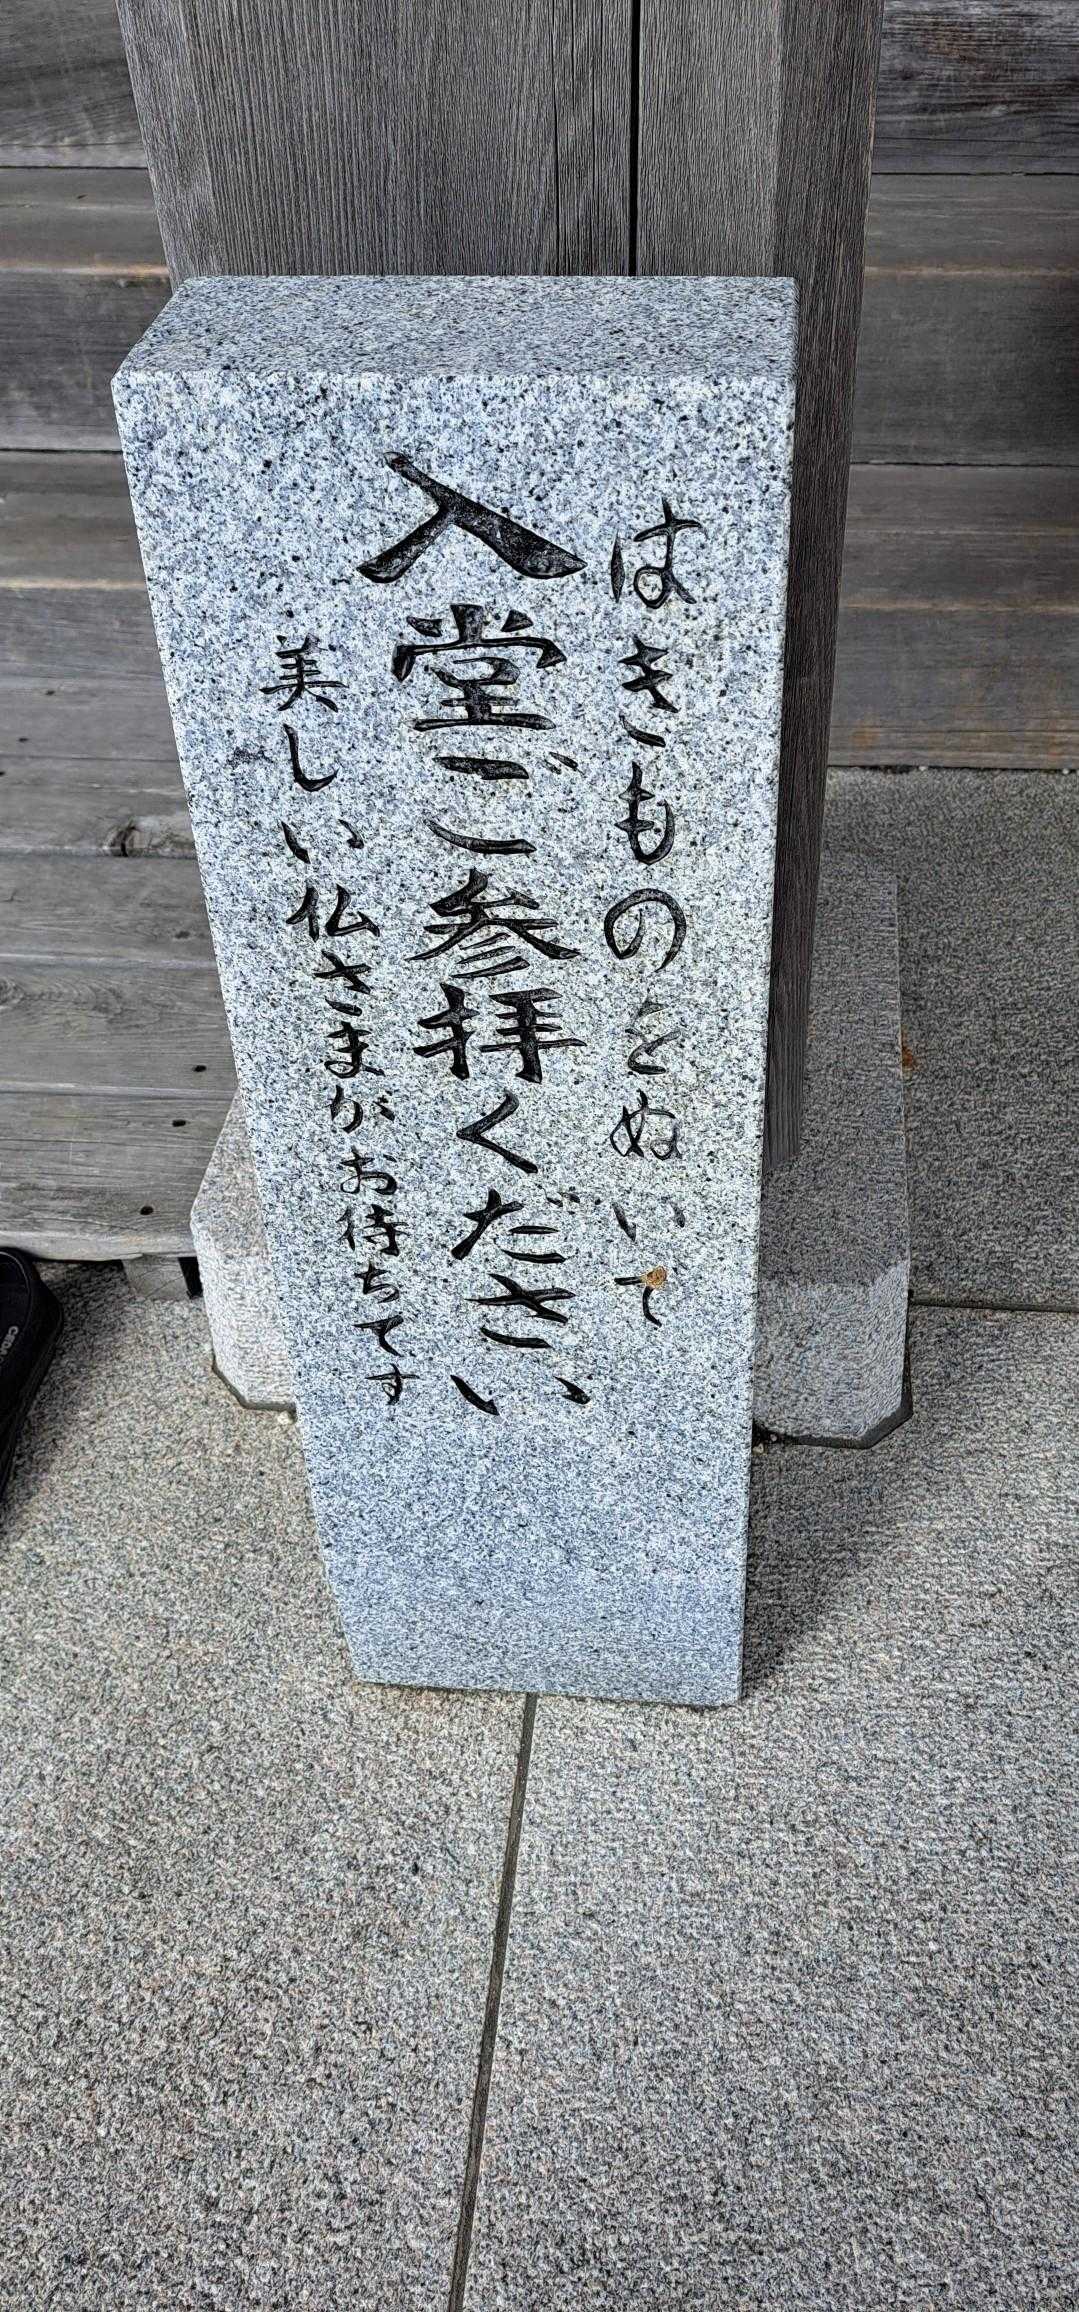 はきものをぬいで
入堂ご参拝ください
美しい仏さまがお待ちです